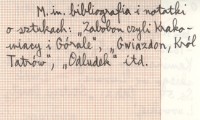 M.in. bibliografia i notatki
o sztukach: „Zabobon czyli Krako-
wiacy i Górale", „Gwiazdon, Król
Tatrów", „Odludek" itd.